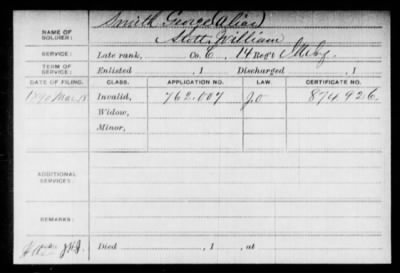 Smith George (Alias)
NAME OF SOLDIER: Stott, William
SERVICE: Late rank, Co. C, 14 Reg't
TERM OF SERVICE: Enlisted , 1 Discharged , 1
DATE OF FILING. CLASS. APPLICATION NO. LAW. CERTIFICATE NO.
1890 Mar. 18 Invalid, 762.007 874.926.
Widow,
Minor,
ADDITIONAL SERVICES:
REMARKS:
Died , 1 , at